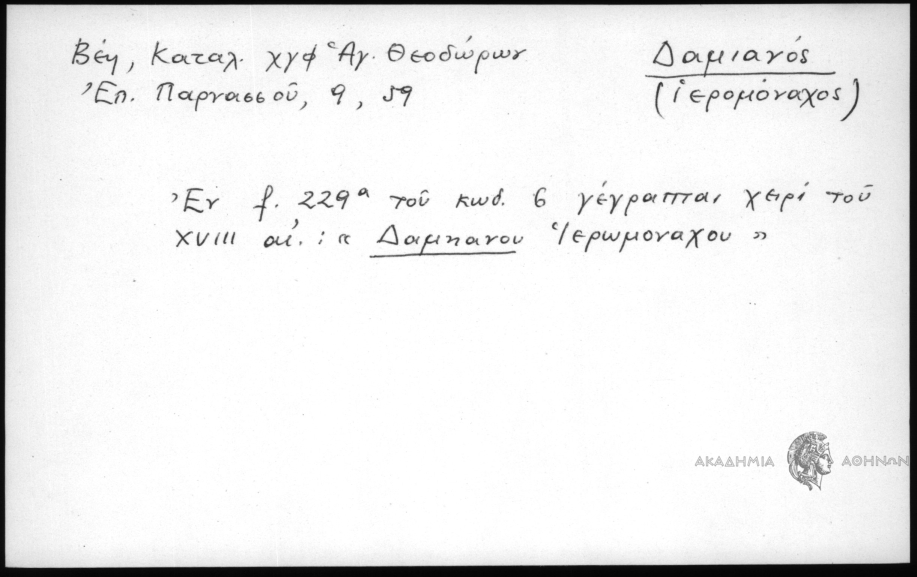 Βέη, Καταλ. χγφ Ἁγ. Θεοδώρων
Ἐπ. Παρνασσοῦ, 9, 59
Δαμιανός
(ἱερομόναχος)
Ἐν f. 229α τοῦ κωδ. 6 γέγραπται χειρὶ τοῦ
XVIII αἰ. : « Δαμηανου Ἱερωμοναχου »
ΑΚΑΔΗΜΙΑ ΑΘΗΝΩΝ